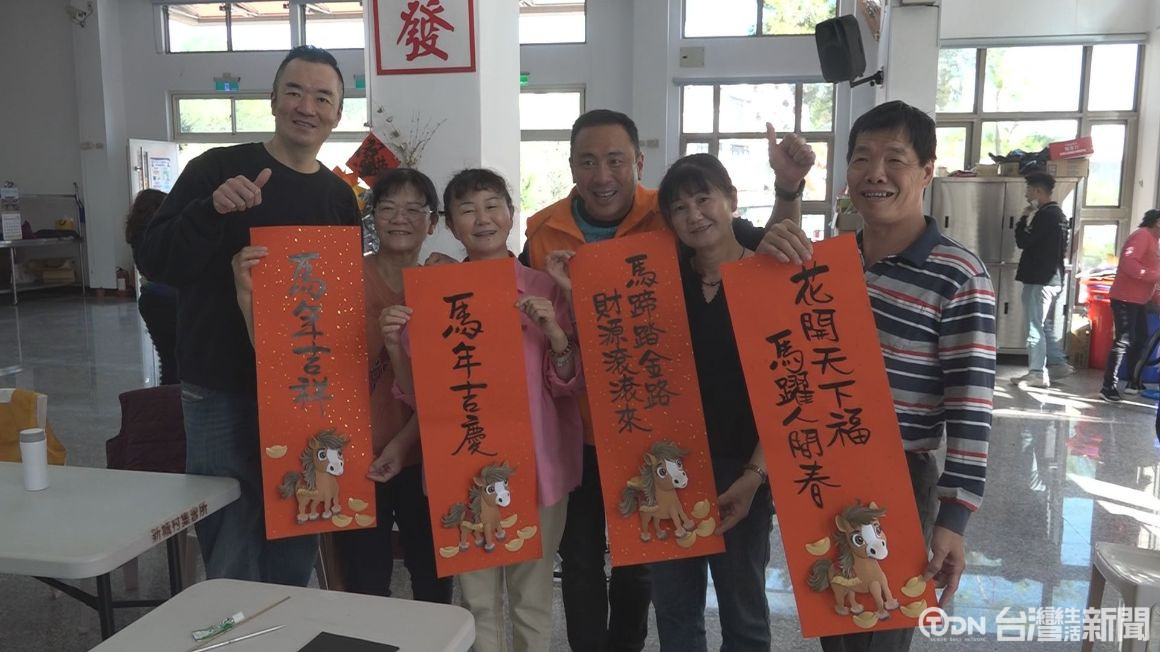 發
馬年吉祥
馬年吉慶
馬蹄踏金路
財源滾滾來
花開天下福
馬躍人間春
新龍村集會所
TDN 台灣生活新聞